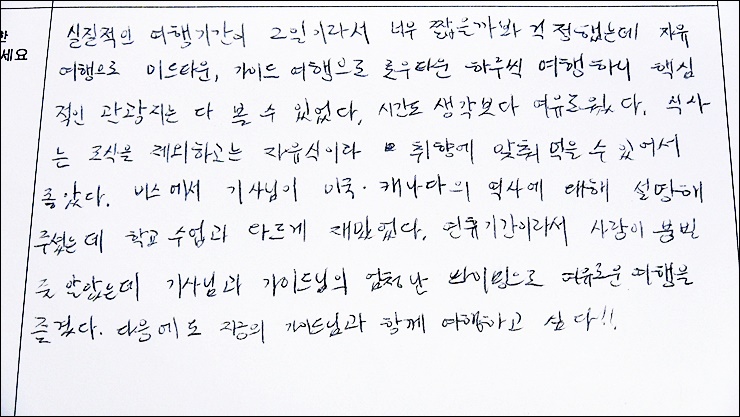 한
세요
실질적인 여행기간이 2일이라서 너무 짧을까봐 걱정했는데 자유
여행으로 미드타운, 가이드 여행으로 로우타운 하루씩 여행하니 핵심
적인 관광지는 다 볼 수 있었다. 시간도 생각보다 여유로웠다. 식사
는 조식을 제외하고는 자유식이라 취향에 맞춰 먹을 수 있어서
좋았다. 버스에서 기사님이 미국·캐나다의 역사에 대해 설명해
주셨는데 학교 수업과 다르게 재밌었다. 연휴기간이라서 사람이 붐빌
줄 알았는데 기사님과 가이드님의 엄청난 타이밍으로 여유로운 여행을
즐겼다. 다음에도 지금의 가이드님과 함께 여행하고 싶다!!